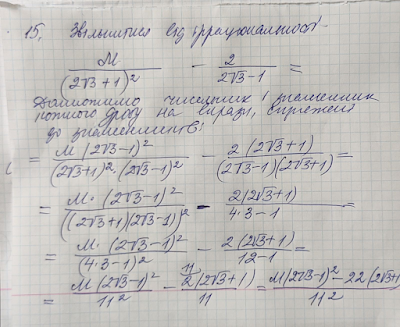 15. Звільнитися від ірраціональності
M/(2√3+1)² - 2/(2√3-1) =
Домножимо чисельник і знаменник
кожного дробу на вирази, спряжені
до знаменників:
= M(2√3-1)²/((2√3+1)²·(2√3-1)²) - 2(2√3+1)/((2√3-1)(2√3+1)) =
= M·(2√3-1)²/((2√3+1)(2√3-1))² - 2(2√3+1)/(4·3-1) =
= M·(2√3-1)²/(4·3-1)² - 2(2√3+1)/(12-1) =
= M(2√3-1)²/11² - 11/ 2(2√3+1)/11 = M(2√3-1)²-22(2√3+1)/11²